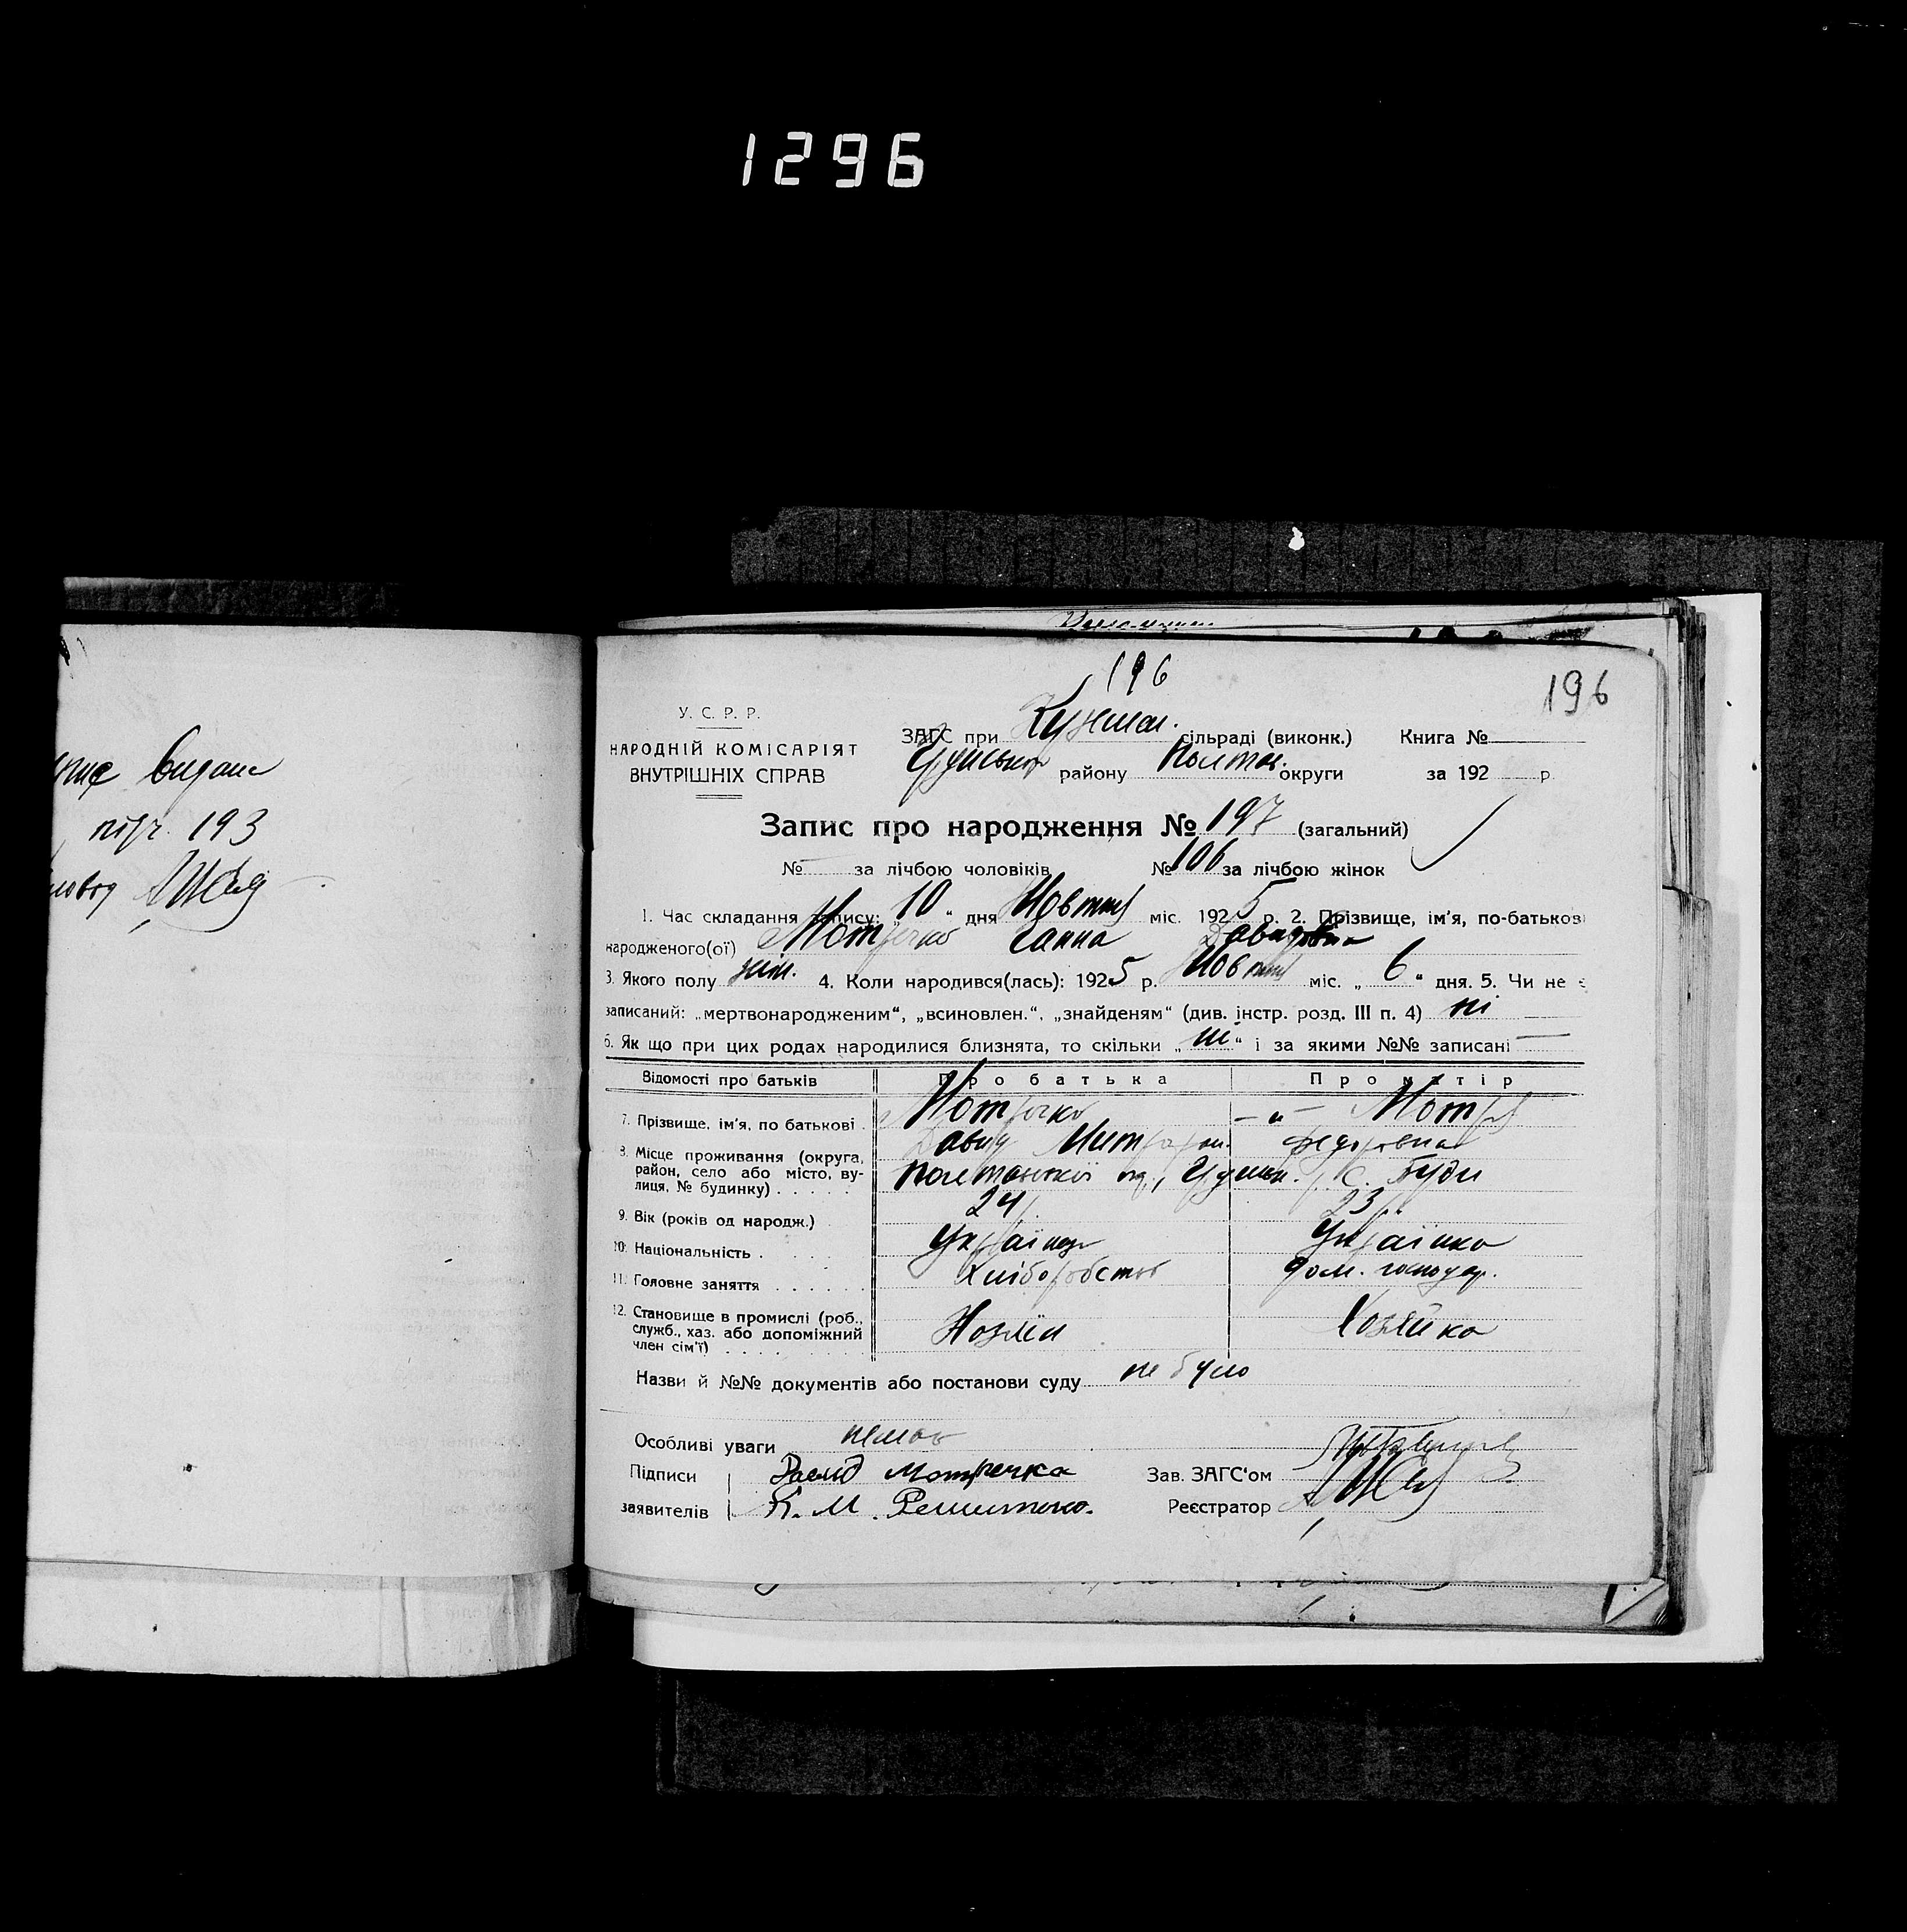 1296
196
196
У. С. Р. Р.
НАРОДНІЙ КОМІСАРІЯТ
ВНУТРІШНІХ СПРАВ
ЗАГС при сільраді (виконк.) Книга №
району Полтав. округи за 192 р.
Запис про народження № 197 (загальний)
№ — за лічбою чоловіків № 106 за лічбою жінок
1. Час складання запису: „10“ дня Жовтня міс. 1925 р. 2. Прізвище, ім'я, по-батькові
народженого(ої) Мотречко Ганна Давидовна
3. Якого полу жін. 4. Коли народився(лась): 1925 р. Жовтня міс. „6“ дня. 5. Чи не є
записаний: „мертвонародженим“, „всиновлен.“, „знайденям“ (див. інстр. розд. III п. 4) ні
6. Як що при цих родах народилися близнята, то скільки „ні“ і за якими №№ записані —
Відомості про батьків Про батька Про матір
7. Прізвище, ім'я, по батькові Мотречко Давид Митрофан. —„— Мотря Федоровна
8. Місце проживання (округа,
район, село або місто, ву-
лиця, № будинку) Полтавської окр., р. с. Буди
9. Вік (років од народж.) 24 р. 23 р.
10. Національність Українець Українка
11. Головне заняття Хліборобство Дом. господар.
12. Становище в промислі (роб.,
служб., хаз. або допоміжний
член сім'ї) Хозяїн Хозяйка
Назви й №№ документів або постанови суду не було
Особливі уваги немає
Підписи Давид Мотречка Зав. ЗАГС'ом
заявителів К. М. Решитько. Реєстратор
видане
193